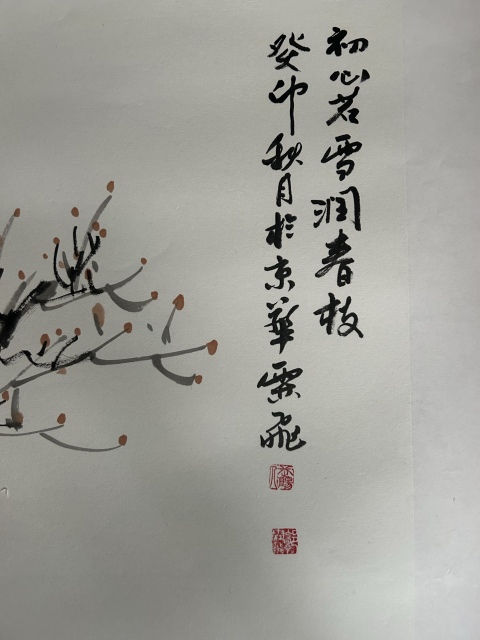 初心若雪润春枝
癸卯秋月於京华霖飛